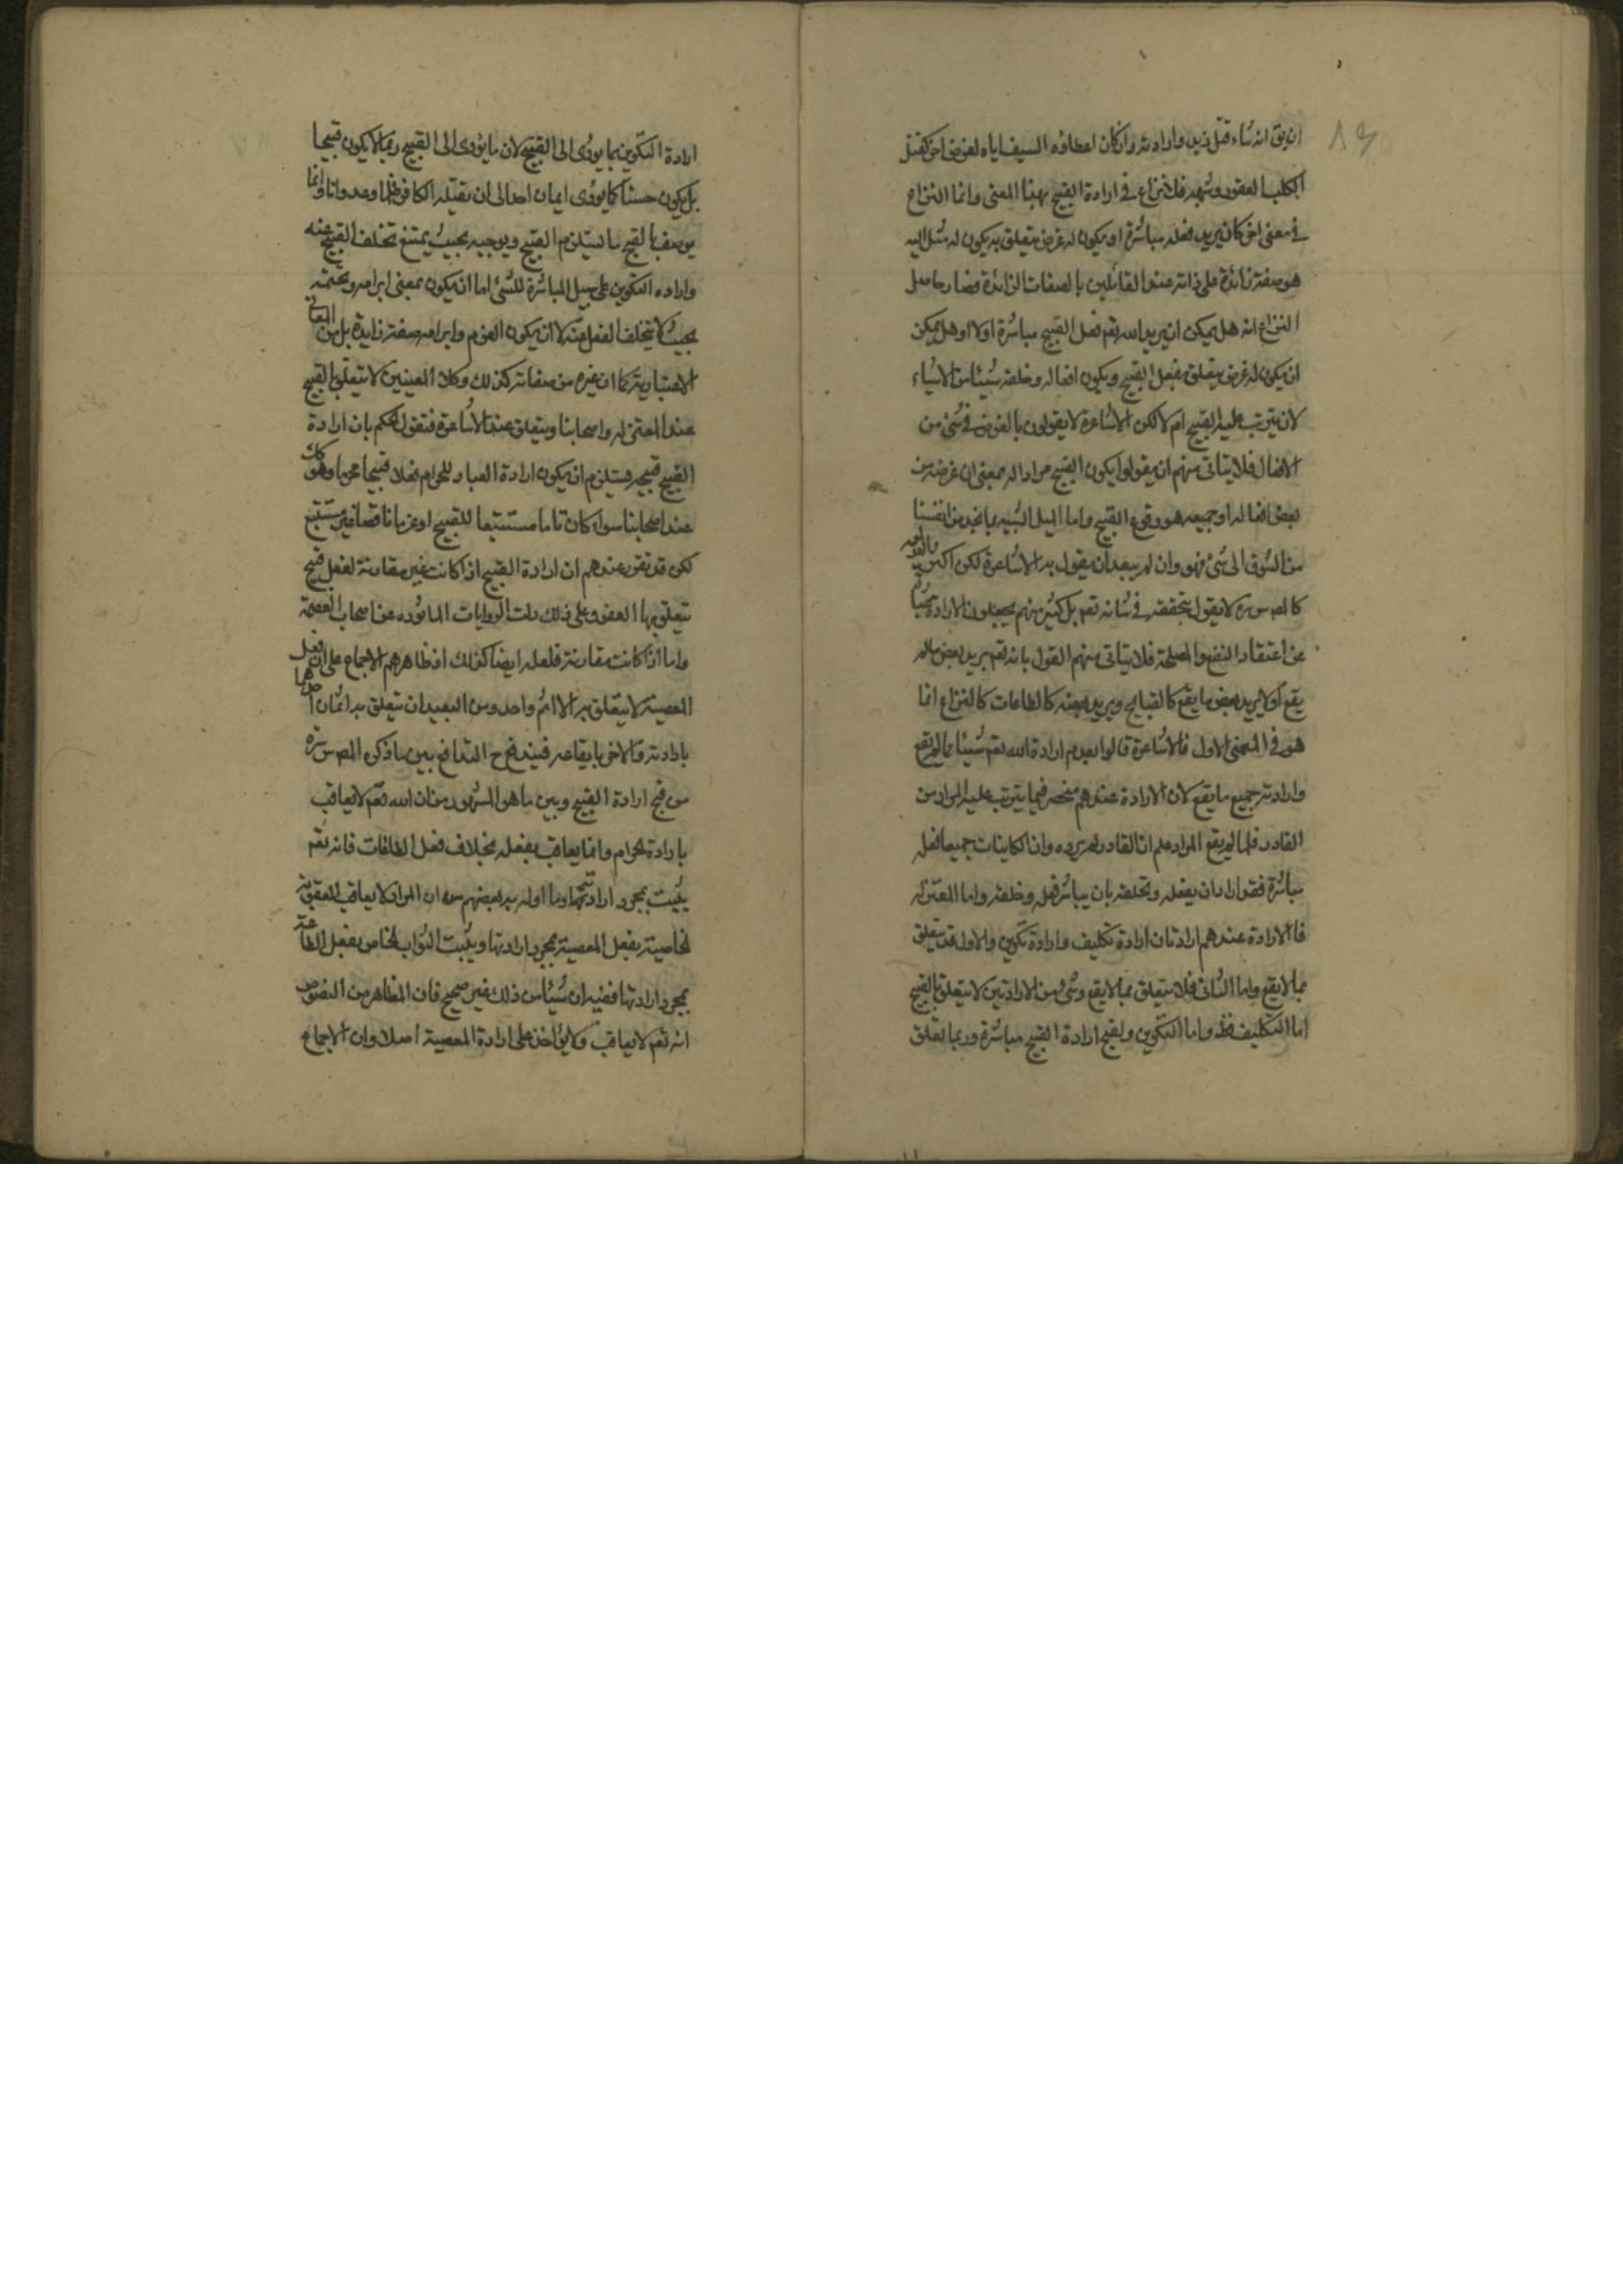 ان يق انه شاء قتل زيد واراد به وان كان اعطاؤه السيف اياه لغرض اخر كقتل
الكلب العقور وشبهه فلا نزاع في ارادة القبيح بهذا المعنى وانما النزاع
في معنى اخر كان يريد فعله مباشرة او يكون له غرض يتعلق به يكون له ميل اليه
هو صفة زائدة على ذاته عند القائلين بالصفات الزائدة فصار حاصل
النزاع انه هل يمكن ان يريد الله تعم فعل القبيح مباشرة اولا او هل يمكن
ان يكون له غرض يتعلق بفعل القبيح ويكون افعاله وخلقه شيئا من الاشياء
لان يترتب عليه القبيح ام لا لكن الاشاعرة لا يقولون بالغرض في شئ من
الافعال فلا يتاتى منهم ان يقولوا يكون القبيح مرادا له بمعنى ان غرضه من
بعض افعاله او جميعه هو وقوع القبيح واما الميل الشبيه بما نجد من انفسنا
من الشوق الى شئ فهو وان لم يبعد ان يقول به الاشاعرة لكن اكثر
كالمص س ره لا يقول بتحققه في شانه تعم بل كثير منهم يجعلون الارادة
عن اعتقاد النفع والمصلحة فلا يتاتى منهم القول بانه تعم يريد بعض ما لم
يقع او لا يريد بعض ما يقع كالقبايح ويريد بعضه كالطاعات كالنزاع انما
هو في المعنى الاول فالاشاعرة قالوا بعدم ارادة الله تعم شيئا مما لم يقع
وارادته جميع ما يقع لان الارادة عندهم منحصر فيما يترتب عليه المراد من
القادر فلما لم يقع المراد علم ان القادر لم يرده وان الكاينات جميعا فعله
مباشرة فقد اراد ان يفعله وتخلقه بان يباشر فعله وخلقه واما المعتزله
فالارادة عندهم ارادتان ارادة تكليف وارادة تكوين والاول قد يتعلق
بما لا يقع واما الثانى فلا يتعلق بما لا يقع وشئ من الارادتين لا يتعلق بالقبيح
اما التكليف فظ واما التكوين ولقبح ارادة القبيح مباشرة وربما تعلق
ارادة التكوين بما يؤدى الى القبيح لان ما يؤدى الى القبيح ربما لا يكون قبيحا
بل يكون حسنا كما يؤدى ايمان احد الى ان يقتله الكافر ظلما وعدوانا وانما
يوصف بالقبح ما يستلزم القبيح ويوجبه بحيث يمتنع تخلف القبيح عنه
وارادة التكوين على سبيل المباشرة للشئ اما ان يكون بمعنى ابرامه وتحتمه
بحيث لا يتخلف الفعل عنه لا ان يكون العزم وابرامه صفة زايدة بل من المعانى
الاعتبارية كما ان غيره من صفاته كذلك وكلا المعنيين لا يتعلق بالقبيح
عند المعتزله واصحابنا ويتعلق عند الاشاعرة فنقول الحكم بان ارادة
القبيح قبيحة يستلزم ان يكون ارادة العباد للحرام فعلا قبيحا محرما وهو كك
عند اصحابنا سواء كان تاما مستتبعا للقبيح او عزما ناقصا غير مستتبع
لكن قد تقرر عندهم ان ارادة القبيح اذا كانت غير مقارنة لفعل قبيح
يتعلق بها العفو وعلى ذلك دلت الروايات الماثوره عن اصحاب العصمة
واما اذا كانت مقارنة فلعله ايضا كذلك اذ ظاهرهم الاجماع على ان فعل
المعصية لا يتعلق به الا اثم واحد ومن البعيد ان يتعلق به اثمان احدهما
بارادته والاخر بايقاعه فيندفع ح التدافع بين ما ذكره المص س ره
من قبح ارادة القبيح وبين ما هو المشهور من ان الله تعم لا يعاقب
بارادة الحرام وانما يعاقب بفعله بخلاف فعل الطاعات فانه تعم
يثيب بمجرد ارادتها وما اوله به بعضهم من ان المراد لا يعاقب العقوبة
الخاصية بفعل المعصية بمجرد ارادتها ويثبت الثواب الخاص بفعل الطاعة
بمجرد ارادتها ففيه ان شيئا من ذلك غير صحيح فان الظاهر من النصوص
انه تعم لا يعاقب ولا يؤاخذ على ارادة المعصية اصلا وان الاجماع